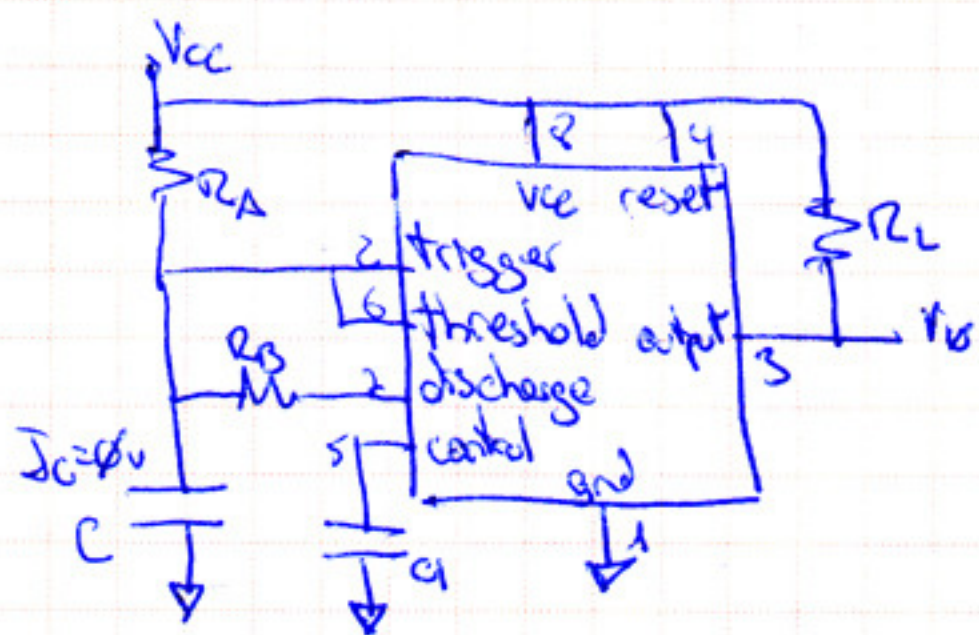 Vcc
RA
8
4
Vcc reset
RL
2 trigger
6 threshold
output
3
RB
discharge
5 control
C
gnd
1